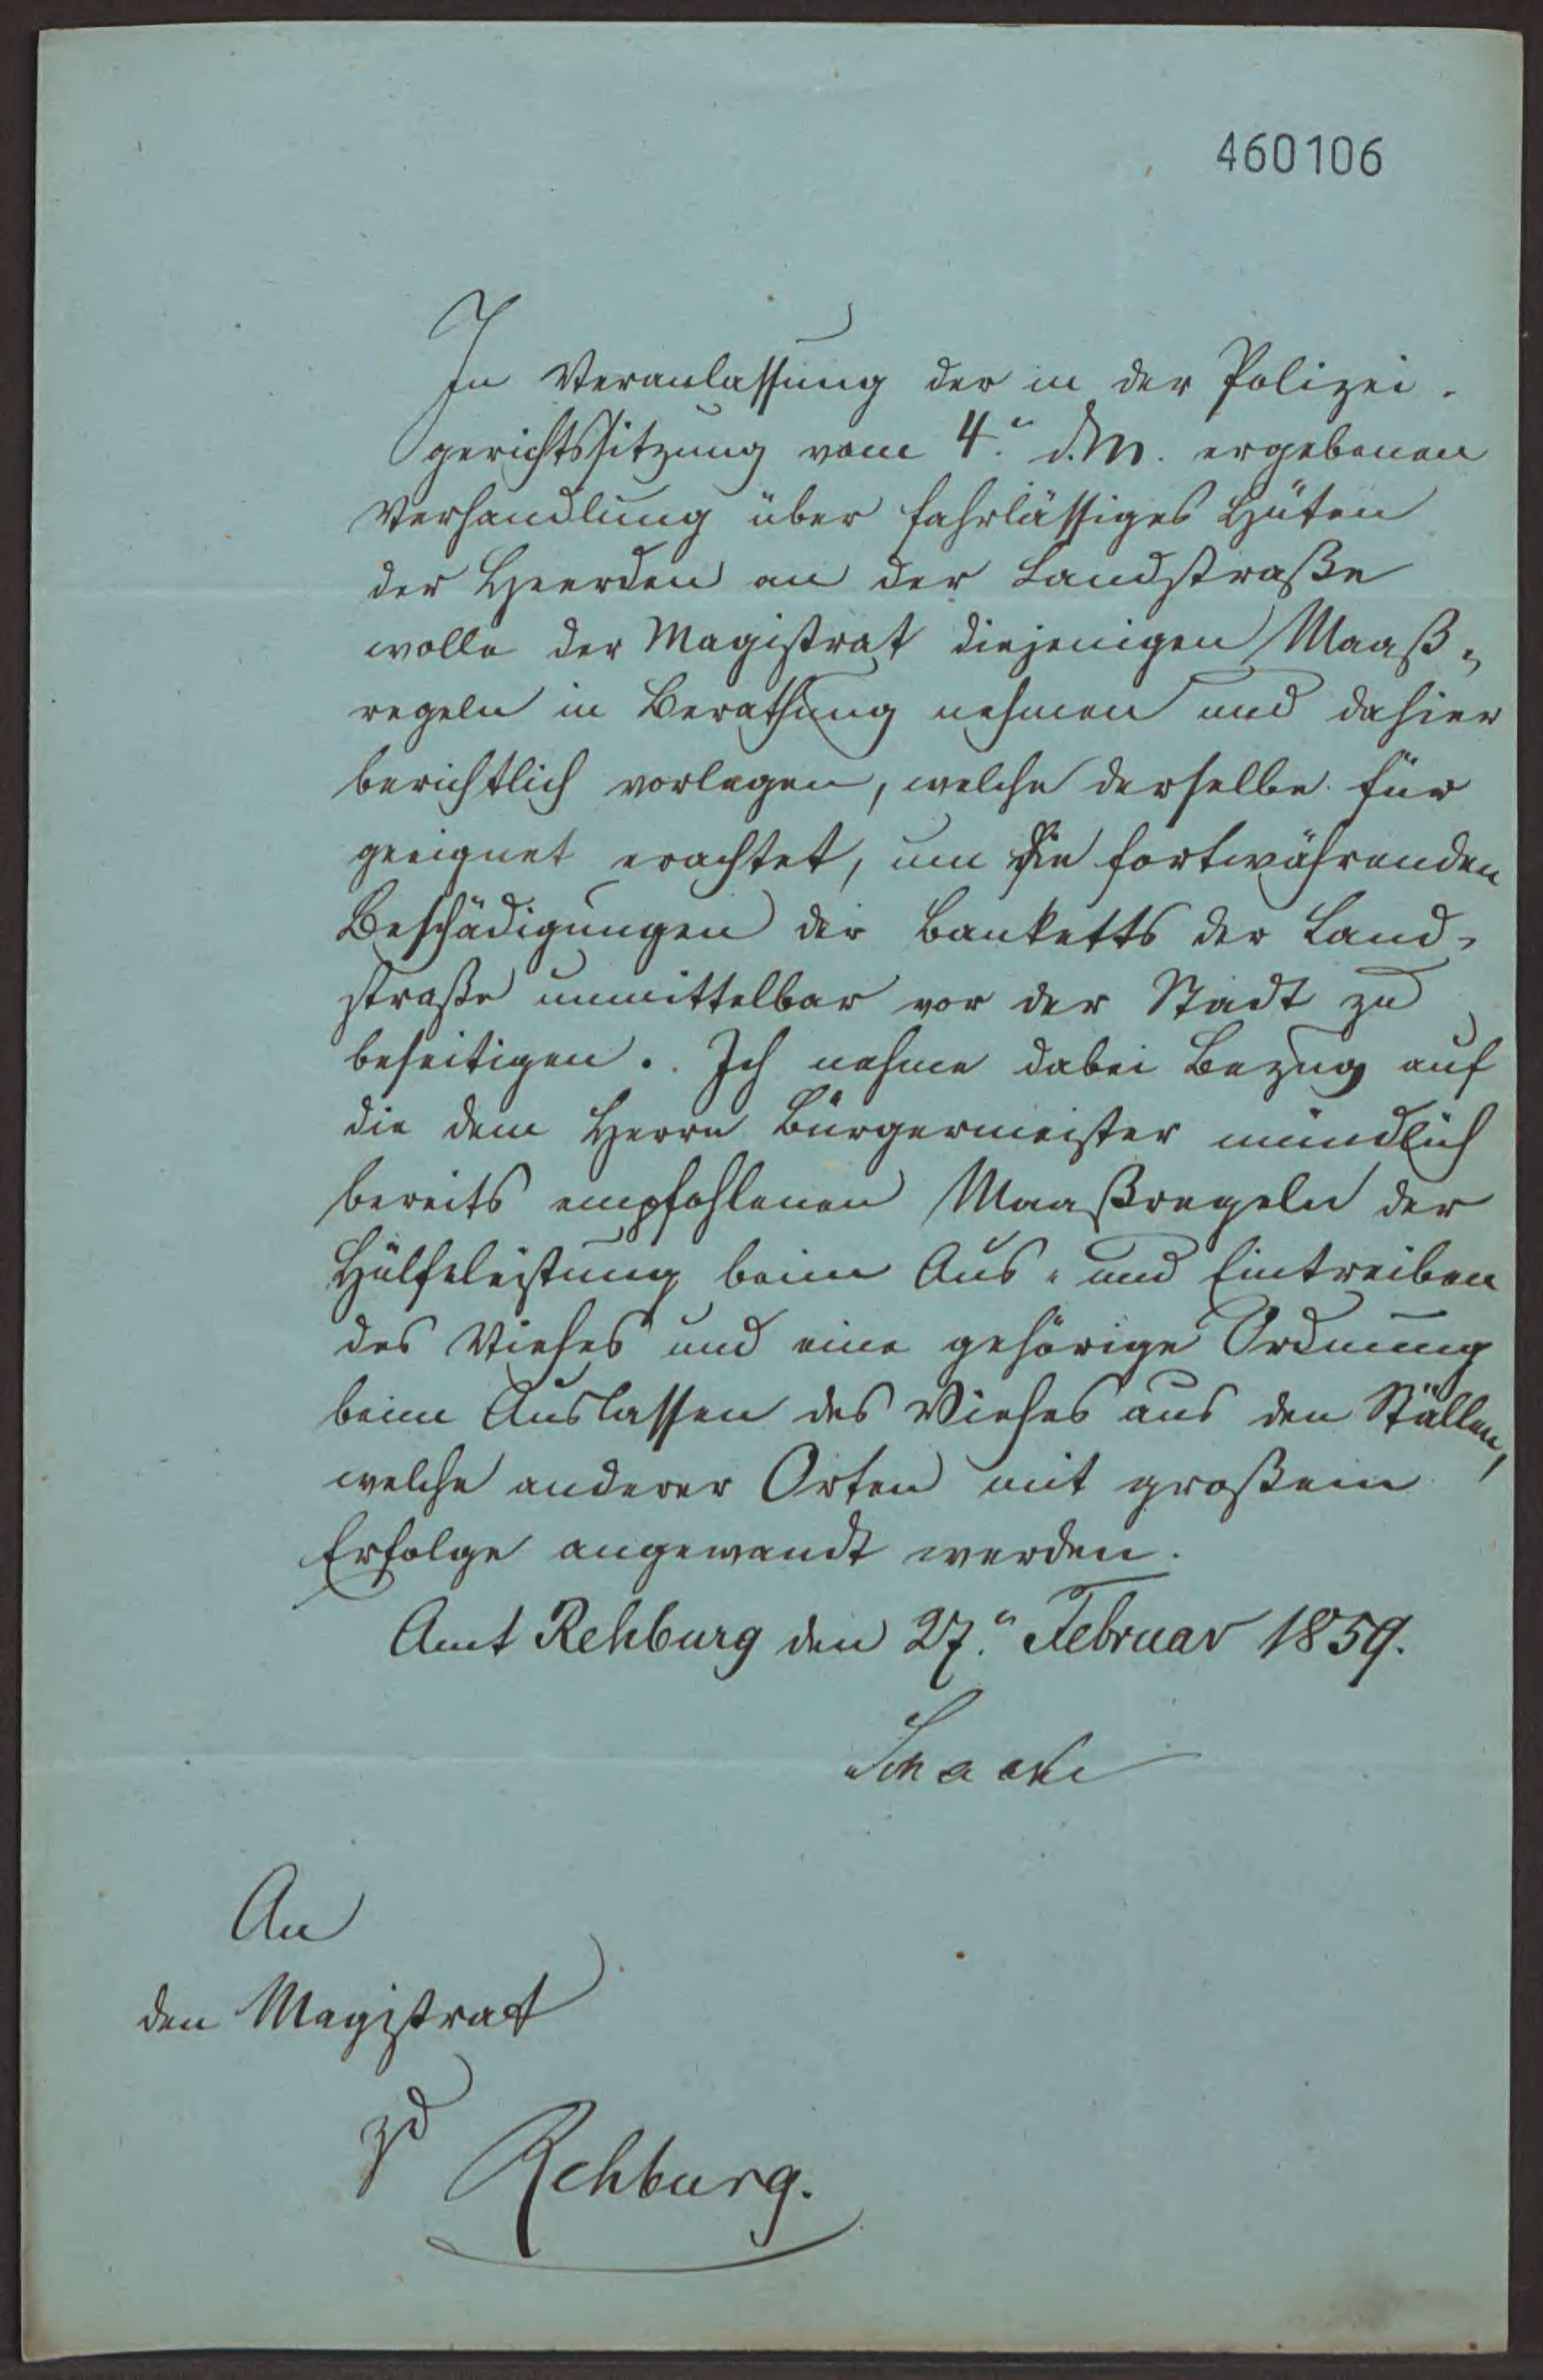 460106
In Veranlassung der in der Polizei-
gerichtssitzung vom 4.n d. M. ergebenen
Verhandlung über fahrlässiges Hüten
der Heerden an der Landstraße
wolle der Magistrat diejenigen Maaß-
regeln in Berathung nehmen und dahier
berichtlich vorlegen, welche derselbe für
geeignet erachtet, um die fortwährenden
Beschädigungen der Banketts der Land-
straße unmittelbar vor der Stadt zu
beseitigen. Ich nehme dabei Bezug auf
die dem Herrn Bürgermeister mündlich
bereits empfohlenen Maaßregeln der
Hülfeleistung beim Aus- und Eintreiben
des Viehes und eine gehörige Ordnung
beim Auslassen des Viehes aus den Ställen,
welche anderer Orten mit großem
Erfolge angewandt werden.
Amt Rehburg den 27.n Februar 1859.
An
den Magistrat
zu
Rehburg.